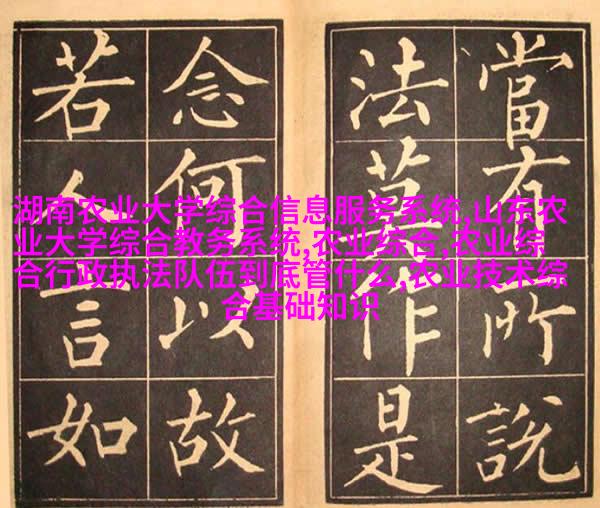 當有所說
法莫作是
念何以故
若人言如
湖南农业大学综合信息服务系统,山东农
业大学综合教务系统,农业综合,农业综
合行政执法队伍到底管什么,农业技术综
合基础知识